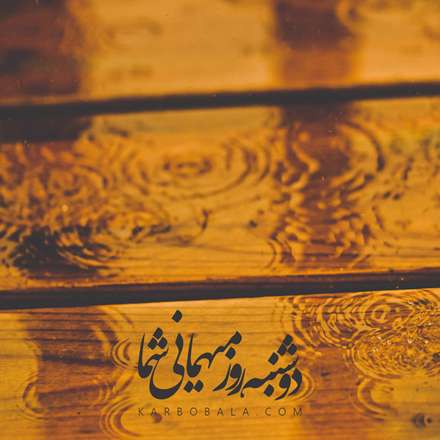 دوشنبه روز میهمانی شما
KARBOBALA.COM